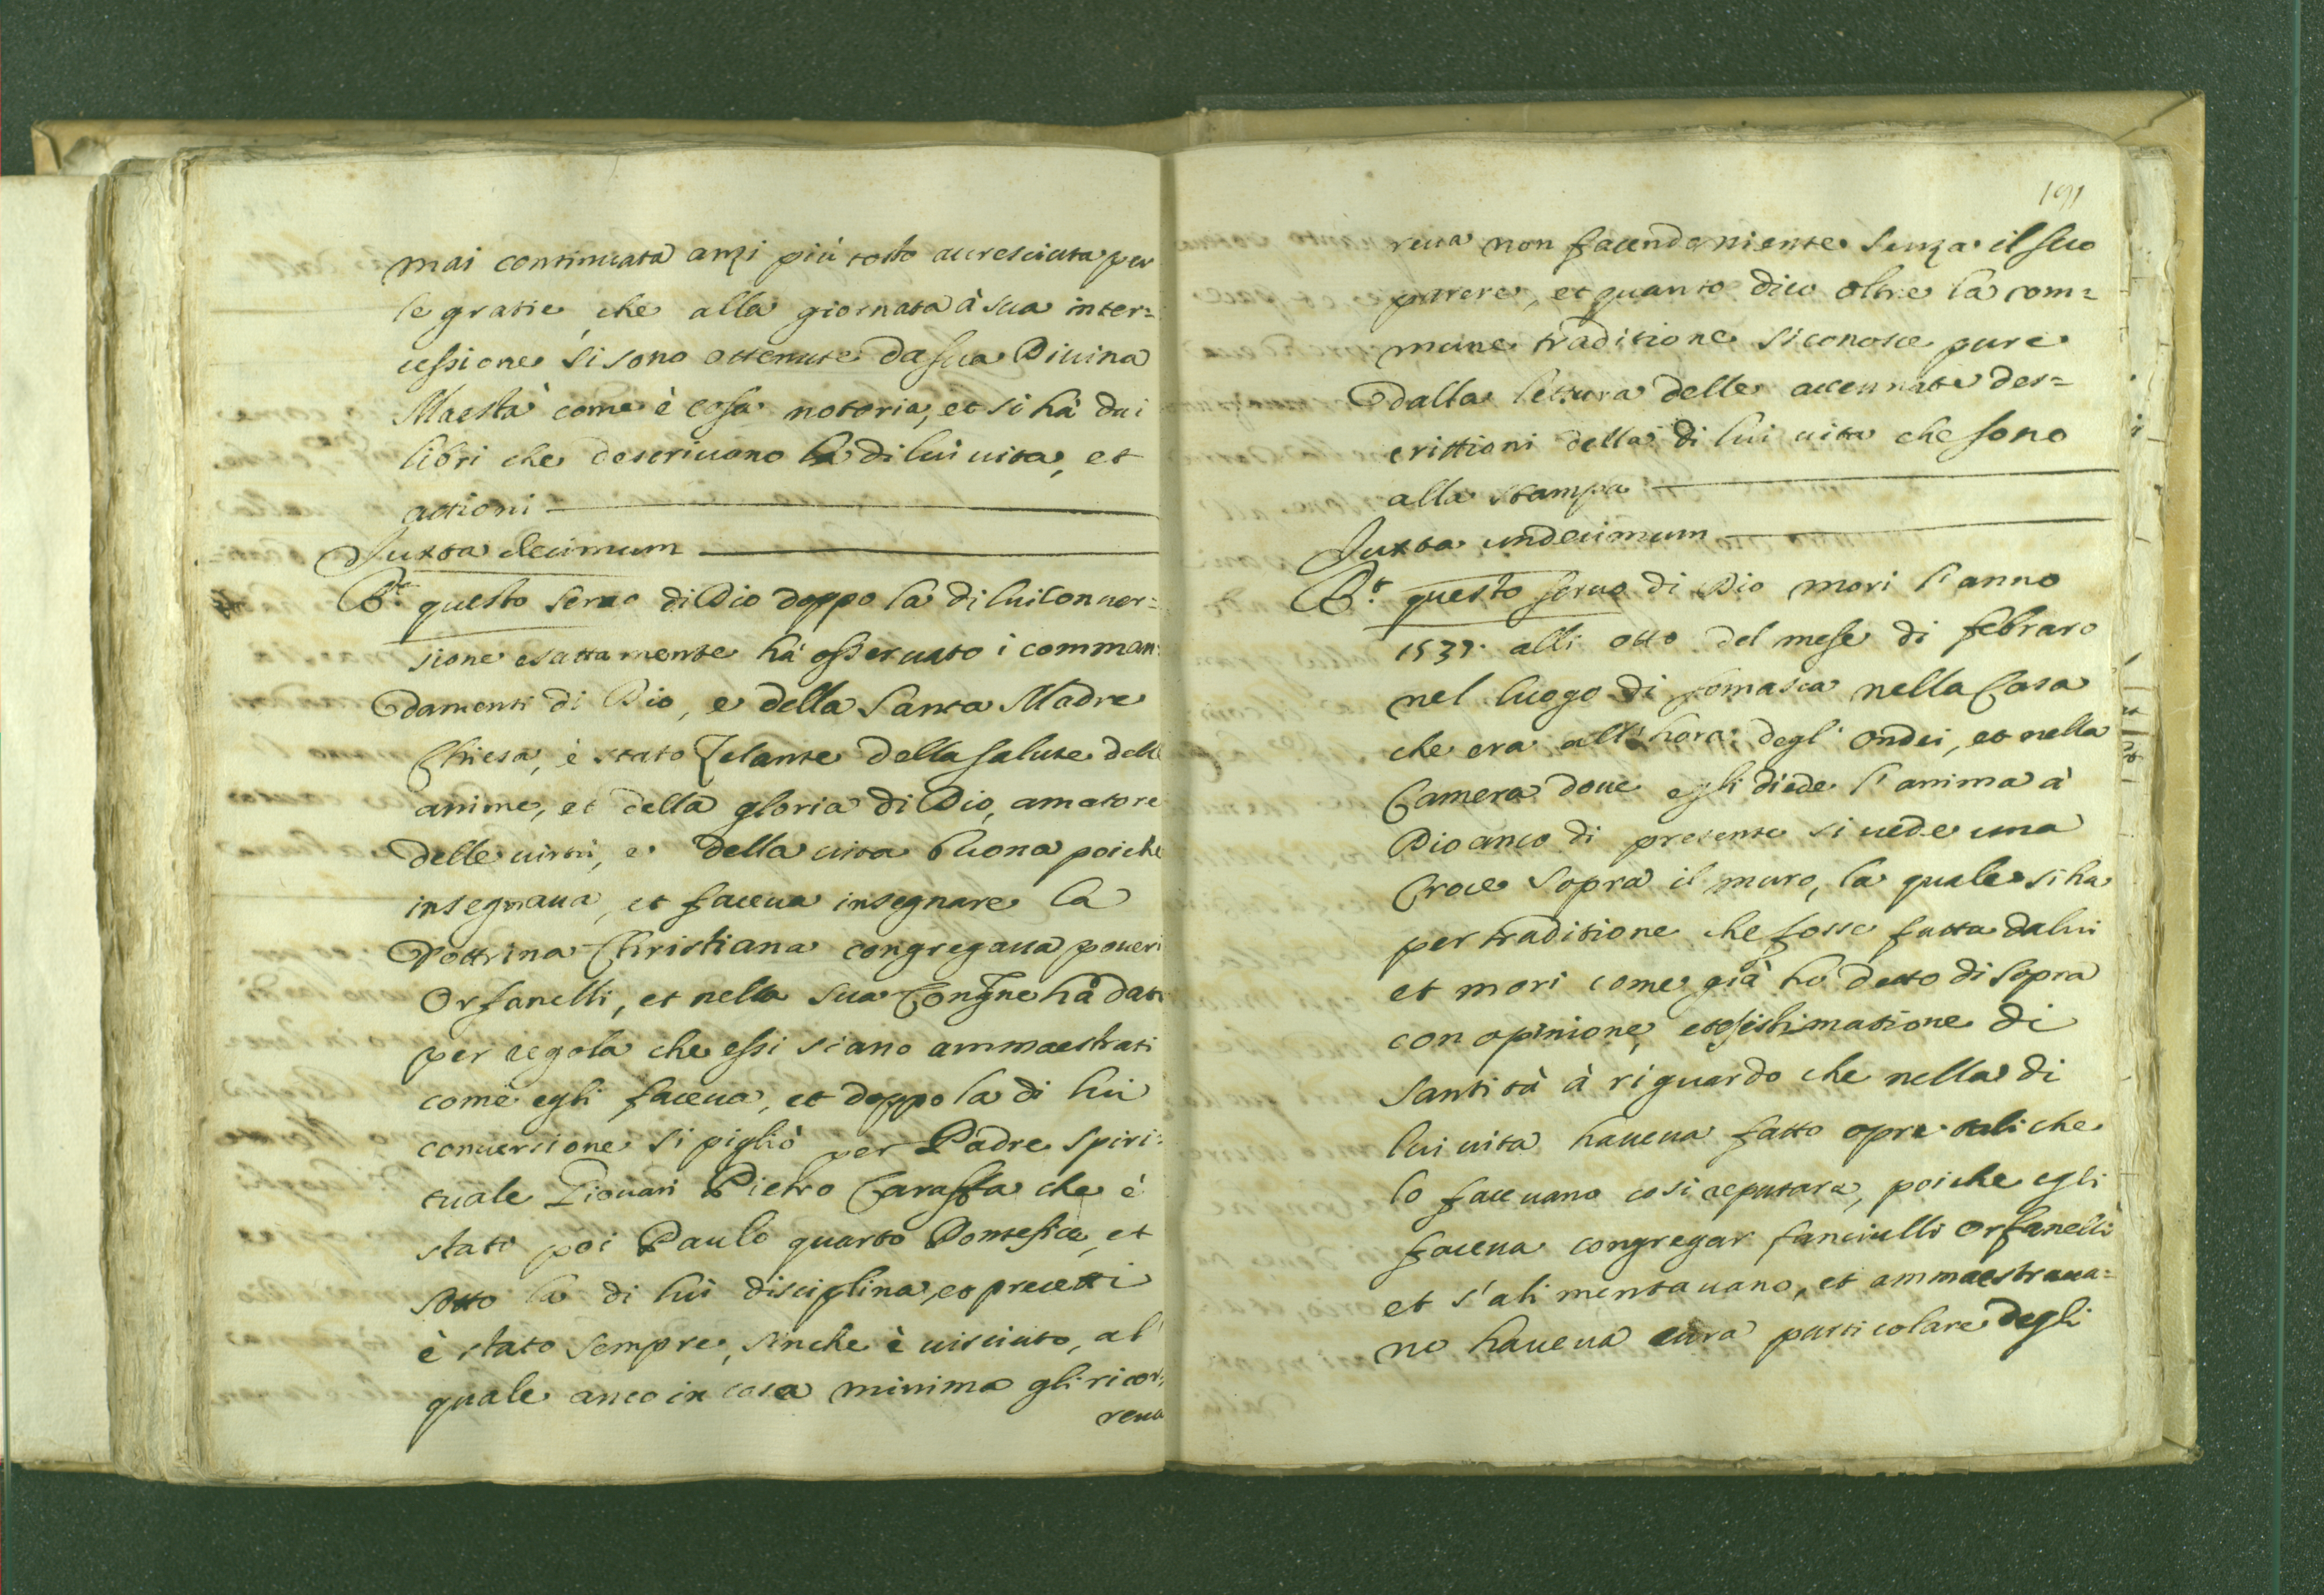 mai continuata anzi più tosto accresciuta per
le gratie, che alla giornata à sua inter=
cessione si sono ottenute da sua Diuina
Maestà come è cosa notoria, et si hà dai
libri che descriuono la di lui uita, et
attioni
Juxta decimum
R.e questo seruo di Dio doppo la di lui Conuer=
sione esattamente hà osseruato i comman=
damenti di Dio, e della Santa Madre
Chiesa, è stato Zelante della salute delle
anime, et della gloria di Dio, amatore
delle uirtù, e della uita buona poiche
insegnaua, et faceua insegnare la
Dottrina Christiana congregaua poueri
Orfanelli, et nella sua Congne hà dato
per regola che essi siano ammaestrati
come egli faceua, et doppo la di lui
conuersione si pigliò per Padre spiri=
tuale Giouan Pietro Caraffa che è
stato poi Paulo quarto Pontefice, et
sotto la di lui disciplina, et precetti
è stato sempre, sinche è uisciuto, al
quale anco in cosa minima gli ricor=
reua
191
reua non facendo niente senza il suo
parere, et quanto dico oltre la com=
mune traditione si conosce pure
dalla lettura delle accennate des=
crittioni della di lui uita che sono
alla stampa
Juxta undecimum
R.t questo seruo di Dio mori l'anno
1537. alli otto del mese di febraro
nel luogo di somasca nella Casa
che era all'hora degl' Ondei, et nella
Camera doue egli diede l'anima à
Dio anco di presente si uede una
Croce sopra il muro, la quale si ha
per traditione che fosse fatta da lui
et mori come già hò detto di sopra
con opinione, et esistimatione di
Santità à riguardo che nella di
lui uita haueua fatto opre tali che
lo faceuano cosi reputare, poiche egli
faceua congregar fanciulli Orfanelli
et s'alimentauano, et ammaestraua=
no haueua cura particolare degli